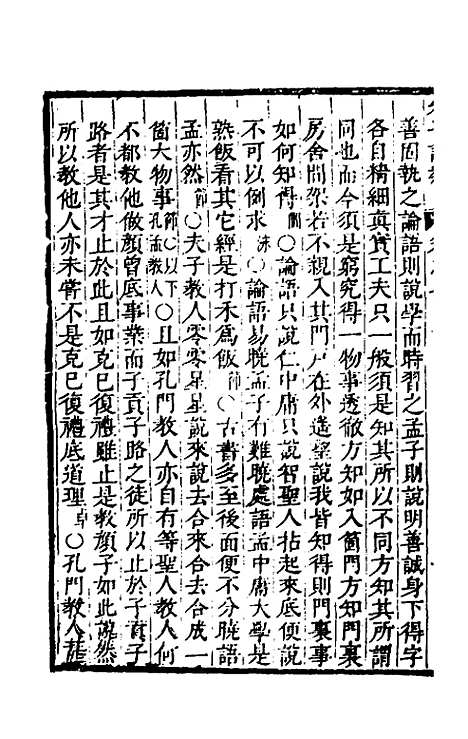 善固執之論語則說學而時習之孟子則說明善誠身下得字
各自精細真實工夫只一般須是知其所以不同方知其所謂
同也而今須是窮究得一物事透徹方知如入箇門方知門裏
房舍間架若不親入其門戶在外遙望說我皆知得則門裏事
如何知得 僩 ○論語只說仁中庸只說智聖人拈起來底便說
不可以例求 ○論語易曉孟子有難曉處語孟中庸大學是
熟飯看其它經是打禾為飯 節 ○古書多至後面便不分曉語
孟亦然 節 ○夫子教人零零星星說來說去合來合去合成一
箇大物事 節○以下孔孟教人 ○且如孔門教人亦自有等聖人教人何
不都教他做顏曾底事業而子貢子路之徒所以止於子貢子
路者是其才止於此且如克己復禮雖止是教顏子如此說然
所以教他人亦未嘗不是克己復禮底道理 卓 ○孔門教人甚